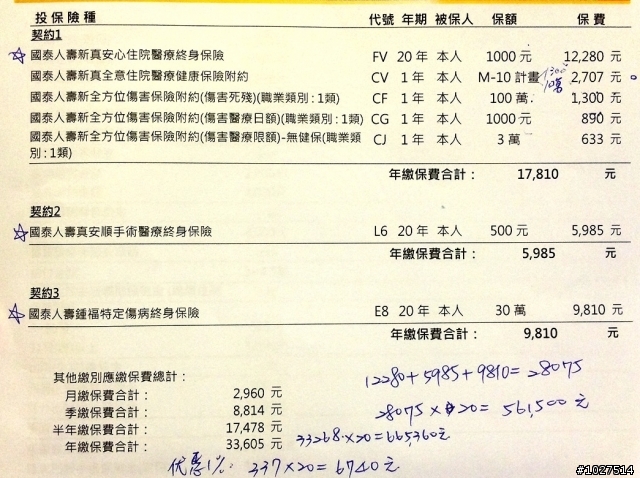 投保險種 代號 年期 被保人 保額 保費
契約1
國泰人壽新真安心住院醫療終身保險 FV 20 年 本人 1000 元 12,280 元
國泰人壽新真全意住院醫療健康保險附約 CV 1 年 本人 M-10 計畫 2,707 元
國泰人壽新全方位傷害保險附約(傷害死殘)(職業類別:1類) CF 1 年 本人 100 萬 1,300 元
國泰人壽新全方位傷害保險附約(傷害醫療日額)(職業類別:1類) CG 1 年 本人 1000 元 890 元
國泰人壽新全方位傷害保險附約(傷害醫療限額)-無健保(職業類 CJ 1 年 本人 3 萬 633 元
別:1類)
年繳保費合計: 17,810 元
契約2
國泰人壽真安順手術醫療終身保險 L6 20 年 本人 500 元 5,985 元
年繳保費合計: 5,985 元
契約3
國泰人壽鍾福特定傷病終身保險 E8 20 年 本人 30 萬 9,810 元
年繳保費合計: 9,810 元
其他繳別應繳保費總計:
月繳保費合計: 2,960 元
季繳保費合計: 8,814 元
半年繳保費合計: 17,478 元
年繳保費合計: 33,605 元
12280+5985+9810=28075
28075×20=561,500元
33268×20=665,360元
优惠1%: 337×20=6740元
#1027514